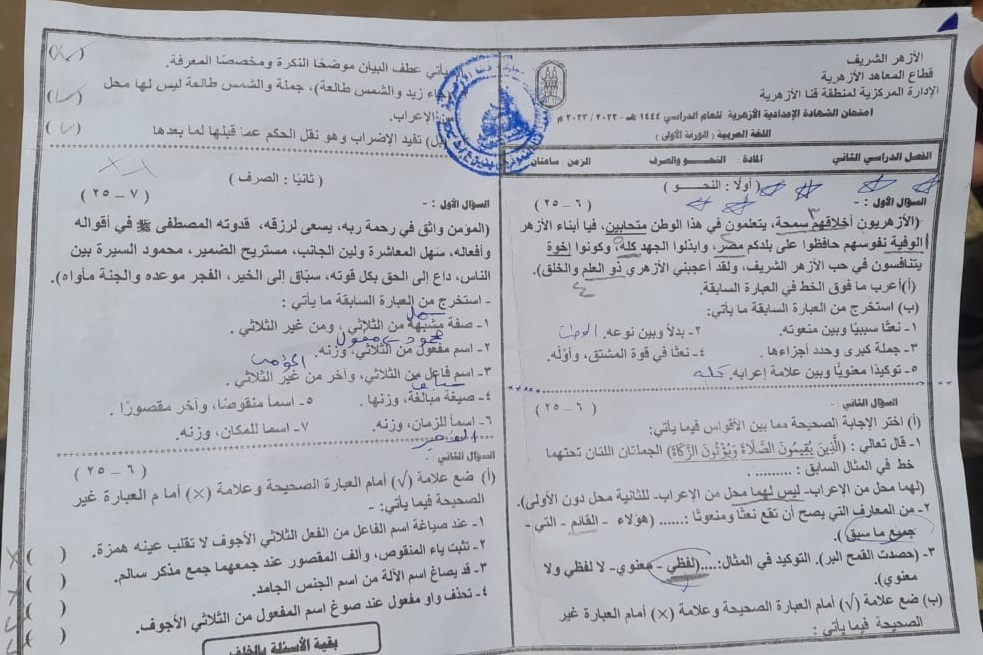 الأزهر الشريف
قطاع المعاهد الأزهرية
الإدارة المركزية لمنطقة قنا الأزهرية
امتحان الشهادة الإعدادية الأزهرية للعام الدراسي ١٤٤٤ هـ - ٢٠٢٢ / ٢٠٢٣ م
اللغة العربية ( الورقة الأولى )
الفصل الدراسي الثاني المادة : النحو والصرف الزمن : ساعتان
( أولًا : النحو )
السؤال الأول : - ( ٦ - ٢٥ )
(الأزهريون أخلاقهم سمحة، يتعلمون في هذا الوطن متحابين، فيا أبناء الأزهر
الوفية نفوسهم حافظوا على بلدكم مصر، وابذلوا الجهد كله وكونوا إخوة
يتنافسون في حب الأزهر الشريف، ولقد أعجبني الأزهري ذو العلم والخلق).
(أ) أعرب ما فوق الخط في العبارة السابقة.
(ب) استخرج من العبارة السابقة ما يأتي:
١- نعتًا سببيًا وبين منعوته. ٢- بدلًا وبين نوعه. الوطن
٣- جملة كبرى وحدد أجزاءها . ٤- نعتًا في قوة المشتق، وأوّله.
٥- توكيدًا معنويًا وبين علامة إعرابه. كله
السؤال الثاني : - ( ٦ - ٢٥ )
(أ) اختر الإجابة الصحيحة مما بين الأقواس فيما يأتي:
١- قال تعالى : (الَّذِينَ يُقِيمُونَ الصَّلَاةَ وَيُؤْتُونَ الزَّكَاةَ) الجملتان اللتان تحتهما
خط في المثال السابق : ..........
(لهما محل من الإعراب- ليس لهما محل من الإعراب- للثانية محل دون الأولى).
٢- من المعارف التي يصح أن تقع نعتًا ومنعوتًا :...... (هؤلاء - القائم - التي -
جميع ما سبق ).
٣- (حصدت القمح البر). التوكيد في المثال:....(لفظي - معنوي- لا لفظي ولا
معنوي).
(ب) ضع علامة (√) أمام العبارة الصحيحة وعلامة (×) أمام العبارة غير
الصحيحة فيما يأتي :
يأتي عطف البيان موضحًا النكرة ومخصصًا المعرفة. (×)
جاء زيد والشمس طالعة)، جملة والشمس طالعة ليس لها محل
من الإعراب. (√)
(بل) تفيد الاضراب وهو نقل الحكم عما قبلها لما بعدها (√)
( ثانيًا : الصرف )
السؤال الأول : - ( ٧ - ٢٥ )
(المؤمن واثق في رحمة ربه، يسعى لرزقه، قدوته المصطفى ﷺ في أقواله
وأفعاله، سهل المعاشرة ولين الجانب، مستريح الضمير، محمود السيرة بين
الناس، داع إلى الحق بكل قوته، سبّاق إلى الخير، الفجر موعده والجنة مأواه).
- استخرج من العبارة السابقة ما يأتي :
سهل
١- صفة مشبهة من الثلاثي ، ومن غير الثلاثي .
محمود - مفعول
٢- اسم مفعول من الثلاثي، وزنه.
المؤمن
٣- اسم فاعل من الثلاثي، وآخر من غير الثلاثي .
سباق
٤- صيغة مبالغة، وزنها . ٥- اسماً منقوصًا، وآخر مقصورًا .
٦- اسماً للزمان، وزنه. ٧- اسما للمكان، وزنه.
الفجر
السؤال الثاني : - ( ٦ - ٢٥ )
(أ) ضع علامة (√) أمام العبارة الصحيحة وعلامة (×) أما م العبارة غير
الصحيحة فيما يأتي: -
١- عند صياغة اسم الفاعل من الفعل الثلاثي الأجوف لا تقلب عينه همزة. ( )
٢- تثبت ياء المنقوص، وألف المقصور عند جمعهما جمع مذكر سالم. ( )
٣- قد يصاغ اسم الآلة من اسم الجنس الجامد. ( )
٤- تحذف واو مفعول عند صوغ اسم المفعول من الثلاثي الأجوف. ( )
بقية الأسئلة بالخلف